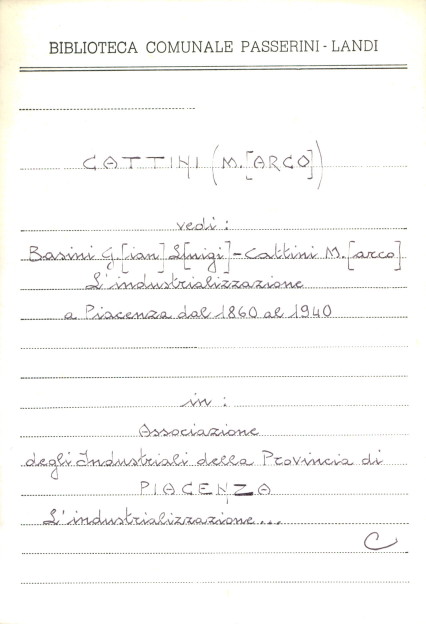 BIBLIOTECA COMUNALE PASSERINI-LANDI
CATTINI (M.[ARCO])
vedi:
Basini G.[ian] L[uigi]-Cattini M.[arco]
L'industrializzazione
a Piacenza dal 1860 al 1940
in:
Associazione
degli Industriali della Provincia di
PIACENZA
L'industrializzazione...
C